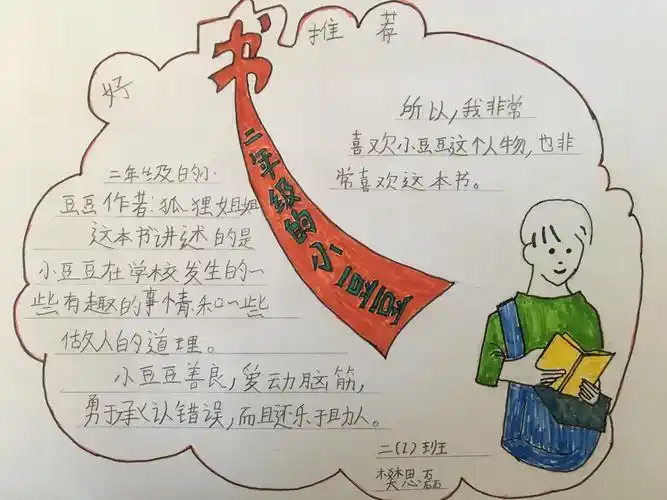 好书推荐
二年级的小豆豆
二年级的小
豆豆作者:狐狸姐姐
这本书讲述的是
小豆豆在学校发生的一
些有趣的事情和一些
做人的道理。
小豆豆善良,爱动脑筋,
勇于承认错误,而且还乐于助人。
所以,我非常
喜欢小豆豆这个人物,也非
常喜欢这本书。
二(1)班
樊思磊